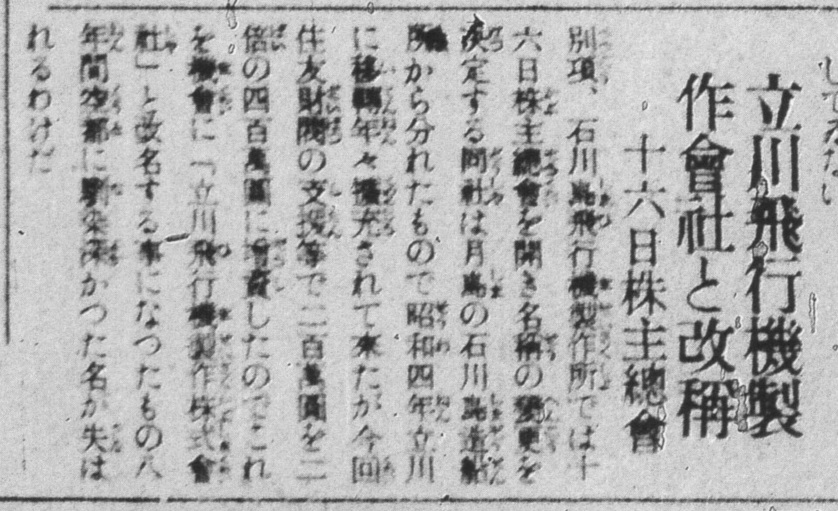 立川飛行機製
作會社と改稱
十六日株主總會
別項、石川島飛行機製作所では十
六日株主總會を開き名稱の變更を
決定する同社は月島の石川島造船
所から分れたもので昭和四年立川
に移轉年々擴充されて來たが今回
住友財閥の支援等で二百萬圓を二
倍の四百萬圓に增資したのでこれ
を機會に「立川飛行機製作株式會
社」と改名する事になつたもの八
年間空都に馴染深かつた名が失は
れるわけだ